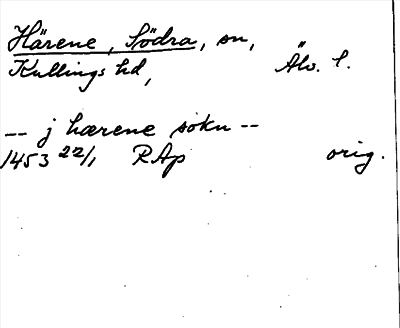 Härene, Södra, sn,
Kullings hd, Älv. l.
-- j hærene sokn --
1453 22/1 RAp orig.